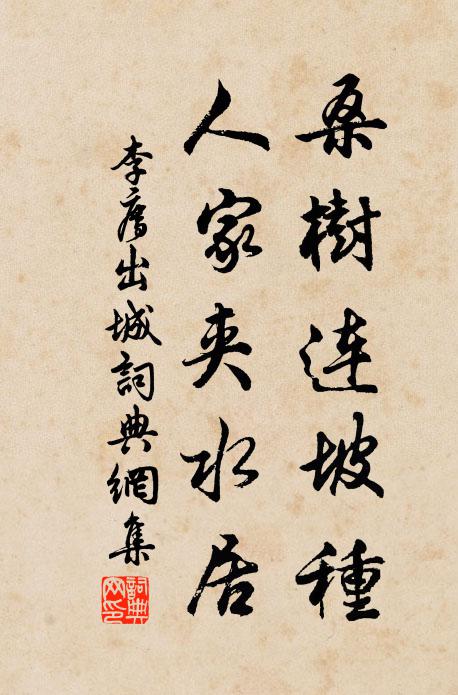 桑樹連坡種
人家夾水居
李廌出城詞典網集
詞典網印